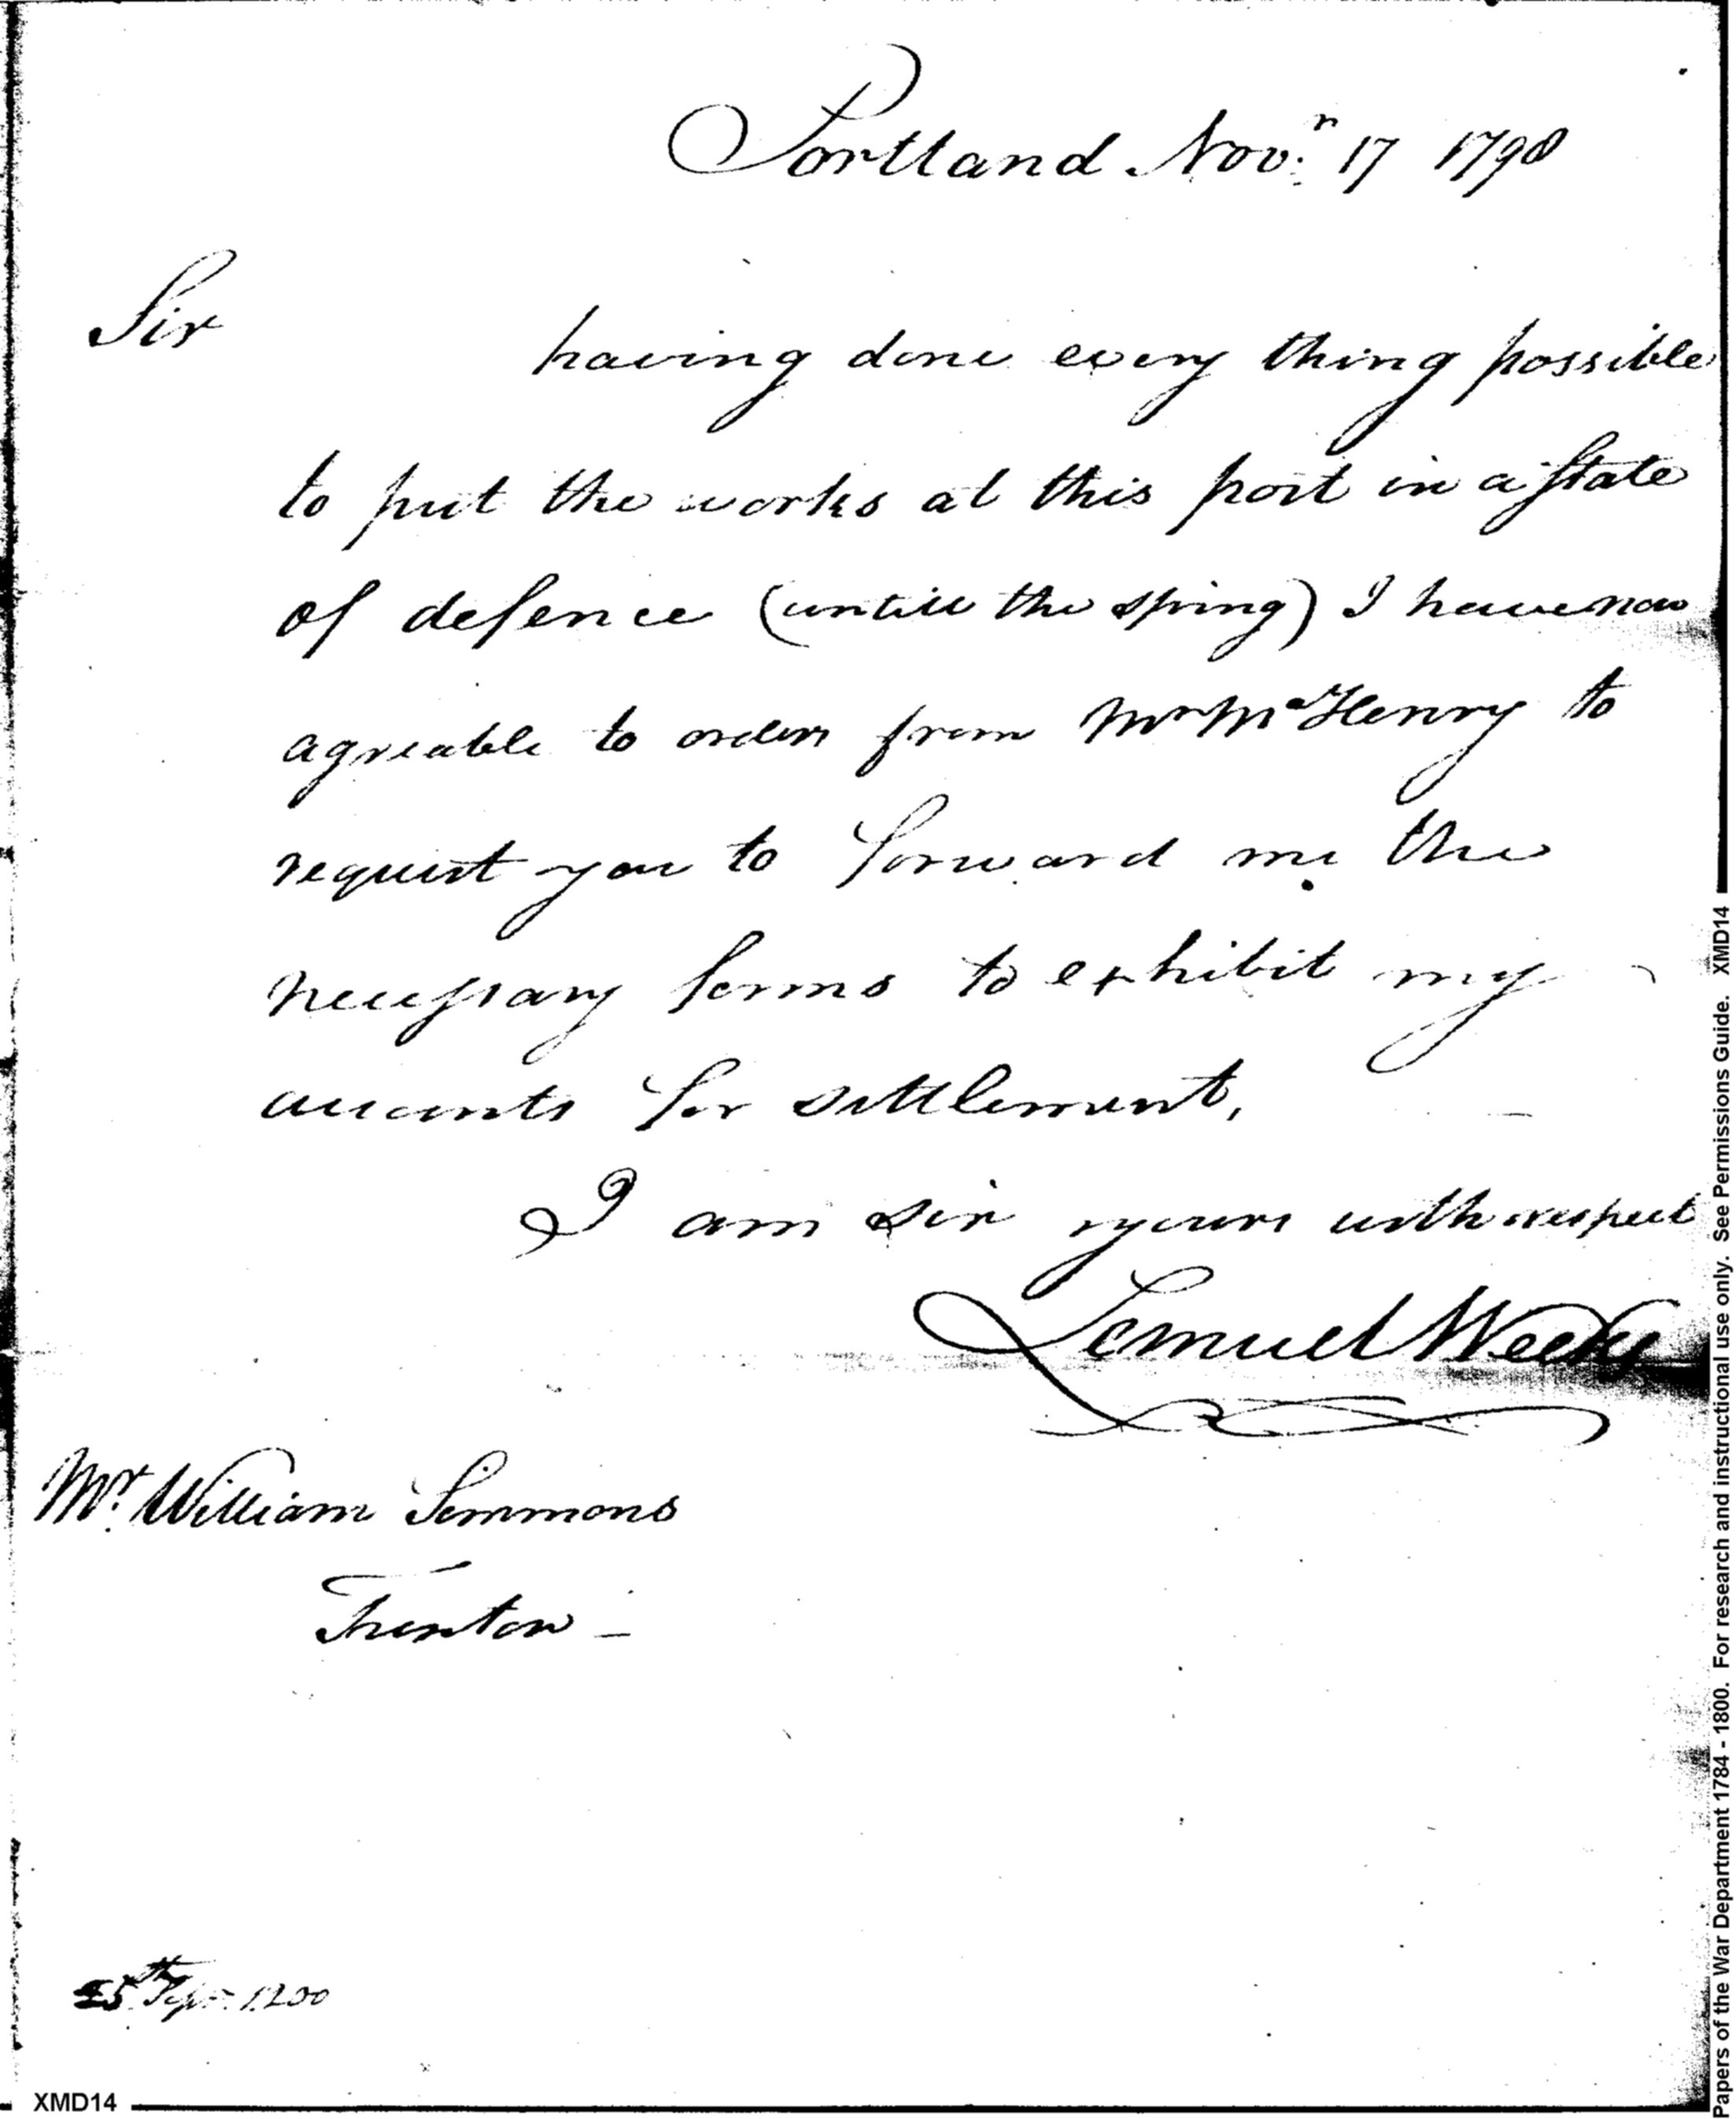 Portland Nov.r 17 1798
Sir
having done every thing possible
to put the works at this port in a state
of defence (untill the spring) I have now
agreable to orders from Mr McHenry to
request you to forward me the
necessary forms to exhibit my
accounts for settlement,
I am sir yours with respect
Lemuel Weeks
Mr. William Simmons
Trenton -
XMD14
Papers of the War Department 1784 - 1800. For research and instructional use only. See Permissions Guide. XMD14